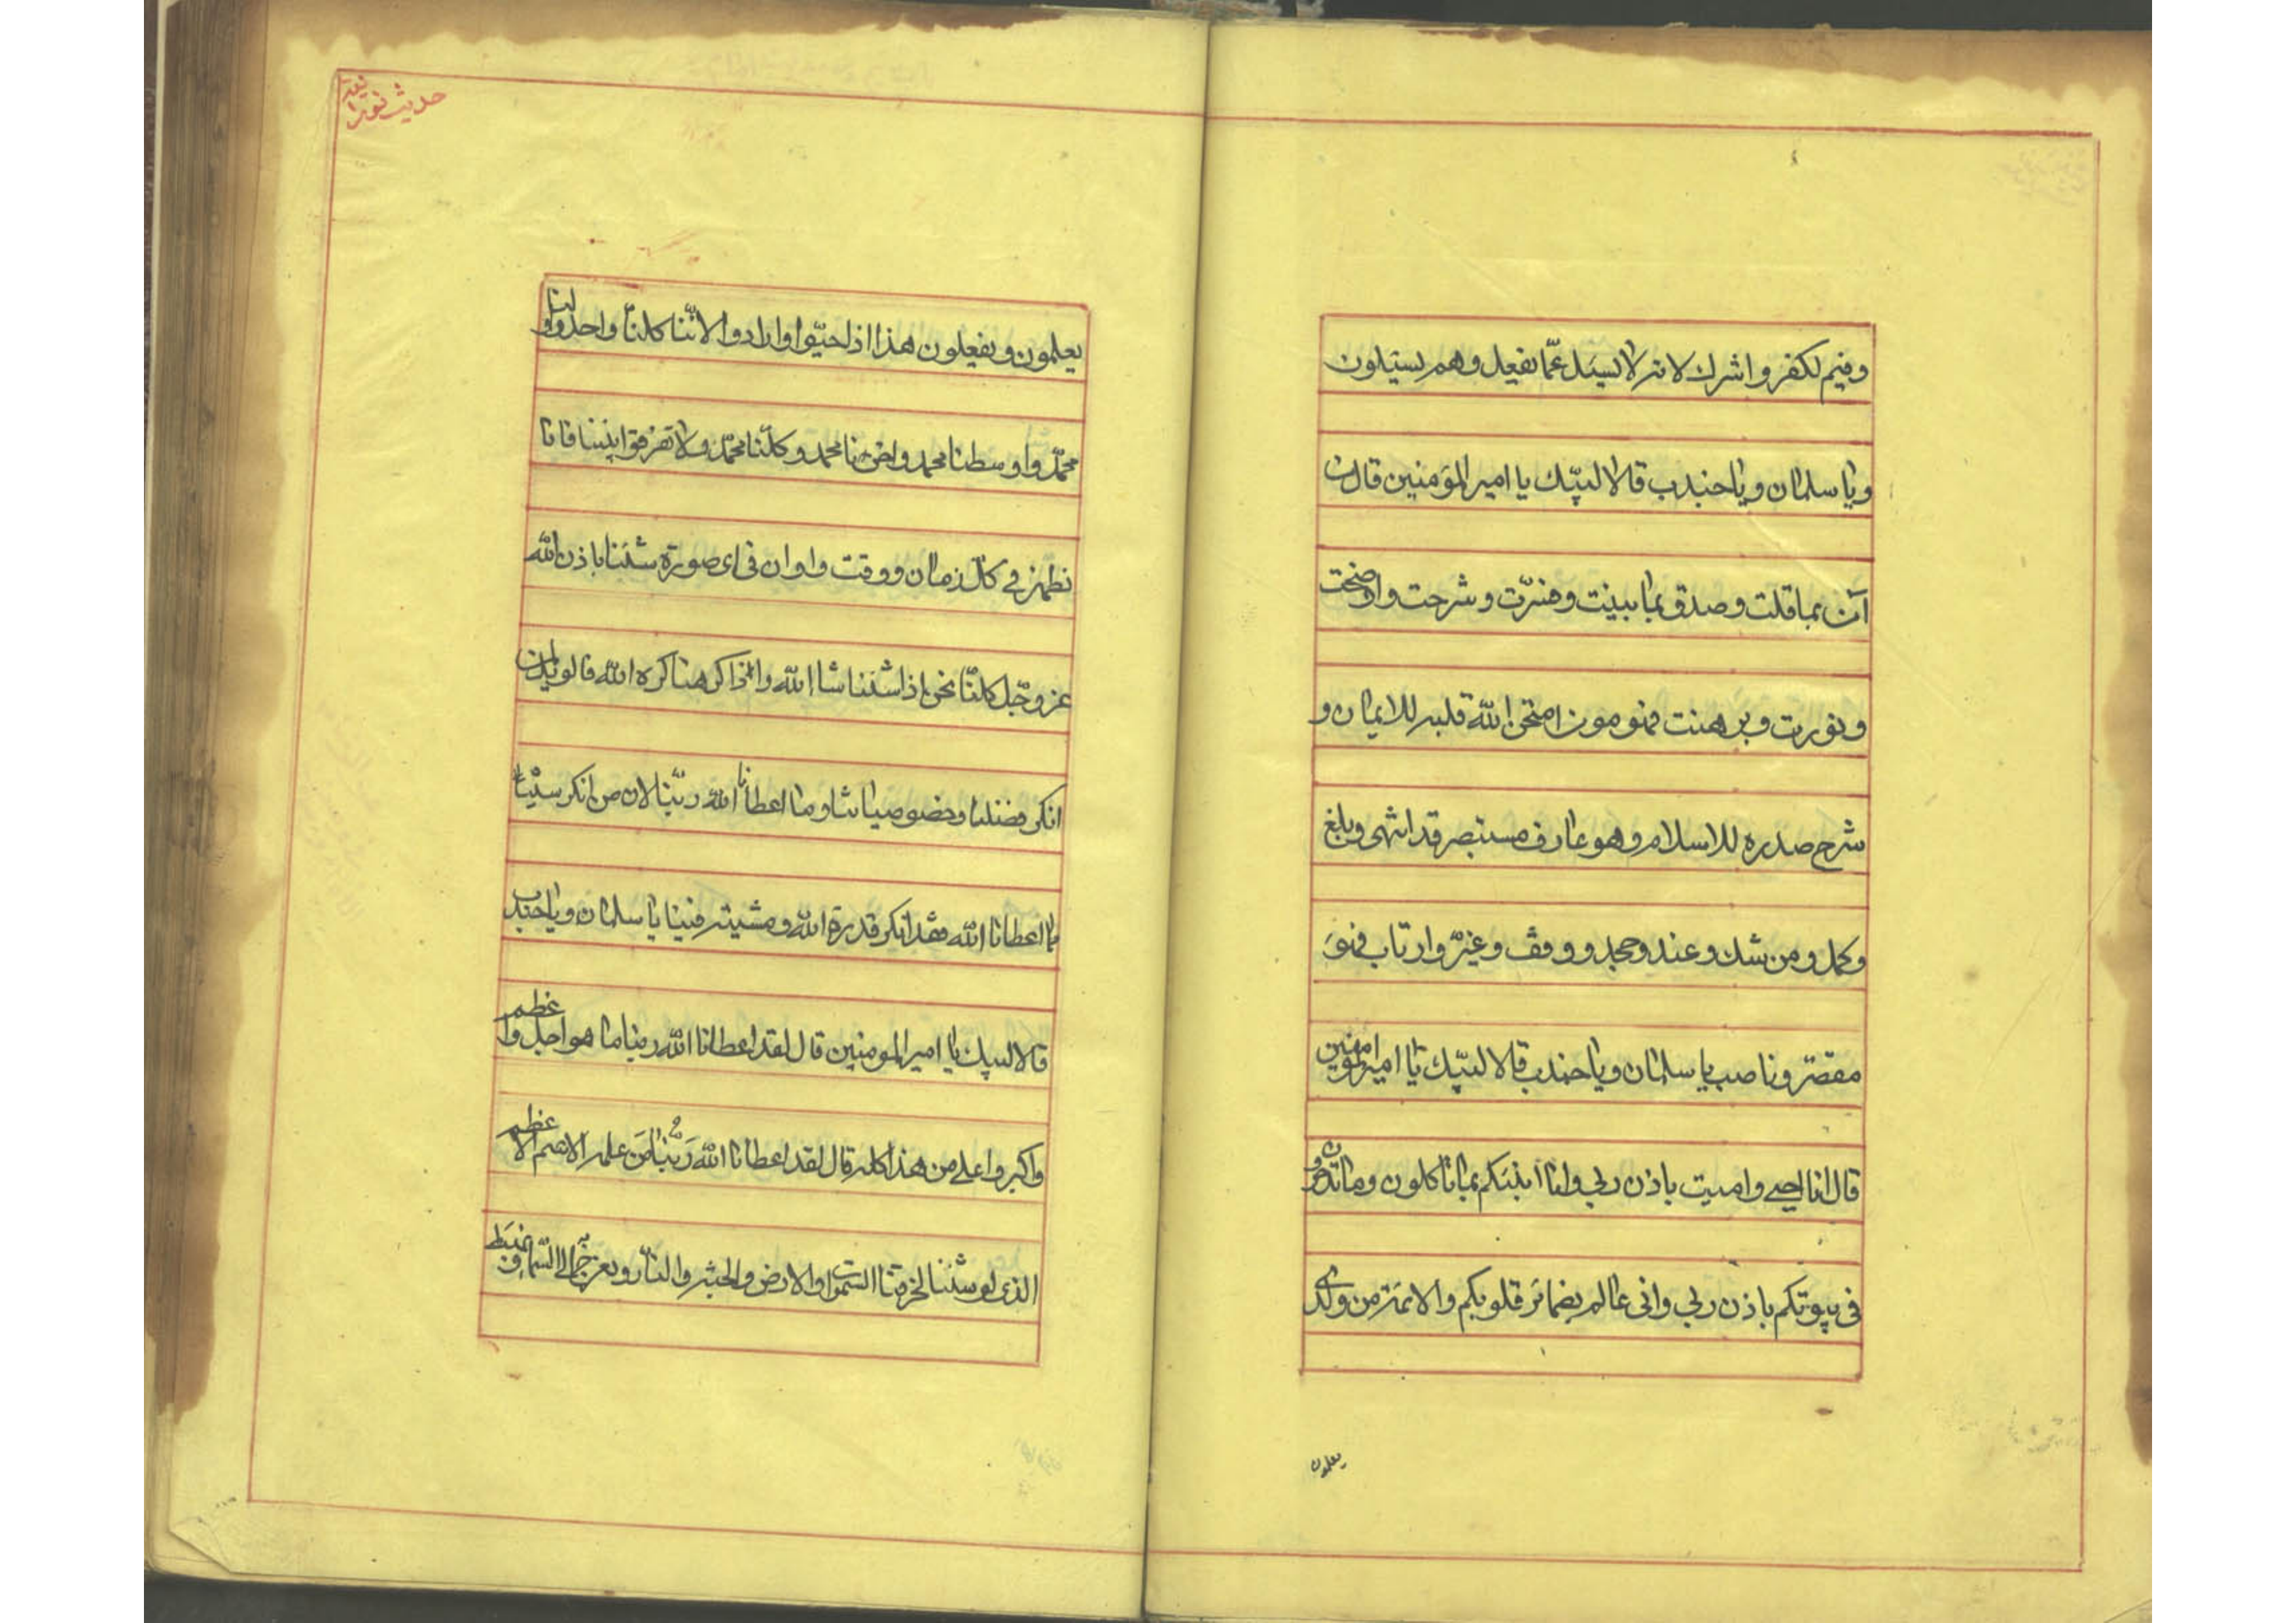 وفيم لكفر واشرك لا نه لا يسئل عمّا يفعل وهم يسئلون
ويا سلمان ويا جندب قالا لبيّك يا امير المؤمنين قال من
آمن بما قلت وصدق بما بينت وفسّرت وشرحت واوضحت
ونورت وبرهنت فهو مومن امتحن الله قلبه للايمان و
شرح صدره للاسلام وهو عارف مستبصر قد انتهى وبلغ
وكمل ومن شك وعند وجحد ووقف وغيّر وارتاب فهو
مقصّر وناصب يا سلمان ويا جندب قالا لبيّك يا امير المؤمنين
قال انا احيي واميت باذن ربي وانا انبئكم بما تاكلون وما تدخرون
في بيوتكم باذن ربي واني عالم بضمائر قلوبكم والائمة من ولدي
يعلمون
حديث نورانية
يعلمون ويفعلون هذا اذا احبّوا وارادوا لانّنا كلنا واحد اولنا
محمّد واوسطنا محمد واخرنا محمد وكلّنا محمّد ولا تفرقوا بيننا فانا
نظهر في كلّ زمان ووقت واوان في اي صورة شئنا باذن الله
عز وجّل كلنّا نحن اذا شئنا شاء الله واذا كرهنا كره الله فالويل لمن
انكر فضلنا وخصوصياتنا وما اعطانا الله ربّنا لان من انكر شيئا
مما اعطانا الله فقد انكر قدرة الله ومشيته فينا يا سلمان ويا جندب
قالا لبيك يا امير المومنين قال لقد اعطانا الله ربنا ما هو اجل واعظم
واكبر واعلى من هذا كله قال لقد اعطانا الله ربّنا من علم الاسم الاعظم
الذي لو شئنا لخرقنا السموات والارض والجنة والنار ونعرج به الى السّماء ونهبط